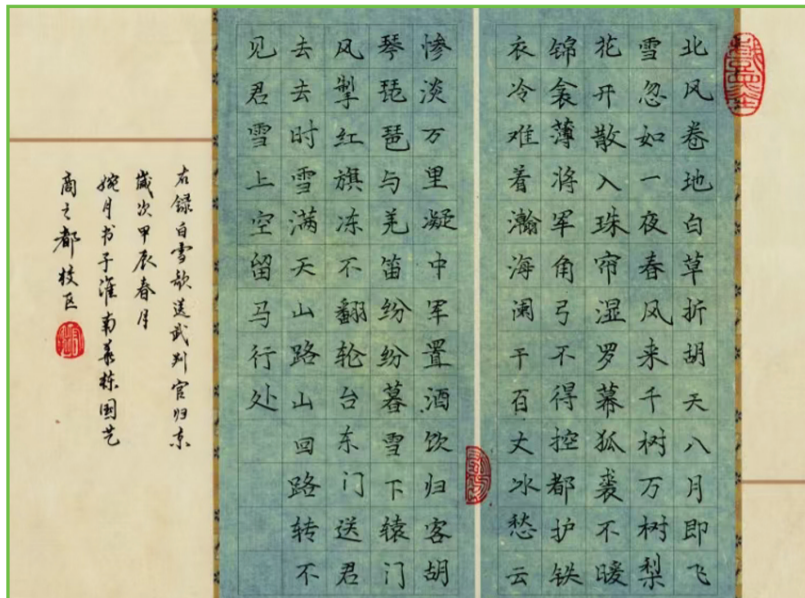 北风卷地白草折胡天八月即飞
雪忽如一夜春风来千树万树梨
花开散入珠帘湿罗幕狐裘不暖
锦衾薄将军角弓不得控都护铁
衣冷难着瀚海阑干百丈冰愁云
惨淡万里凝中军置酒饮归客胡
琴琵琶与羌笛纷纷暮雪下辕门
风掣红旗冻不翻轮台东门送君
去去时雪满天山路山回路转不
见君雪上空留马行处
右录白雪歌送武判官归京
岁次甲辰春月
婉月书于淮南国艺
商之都校区